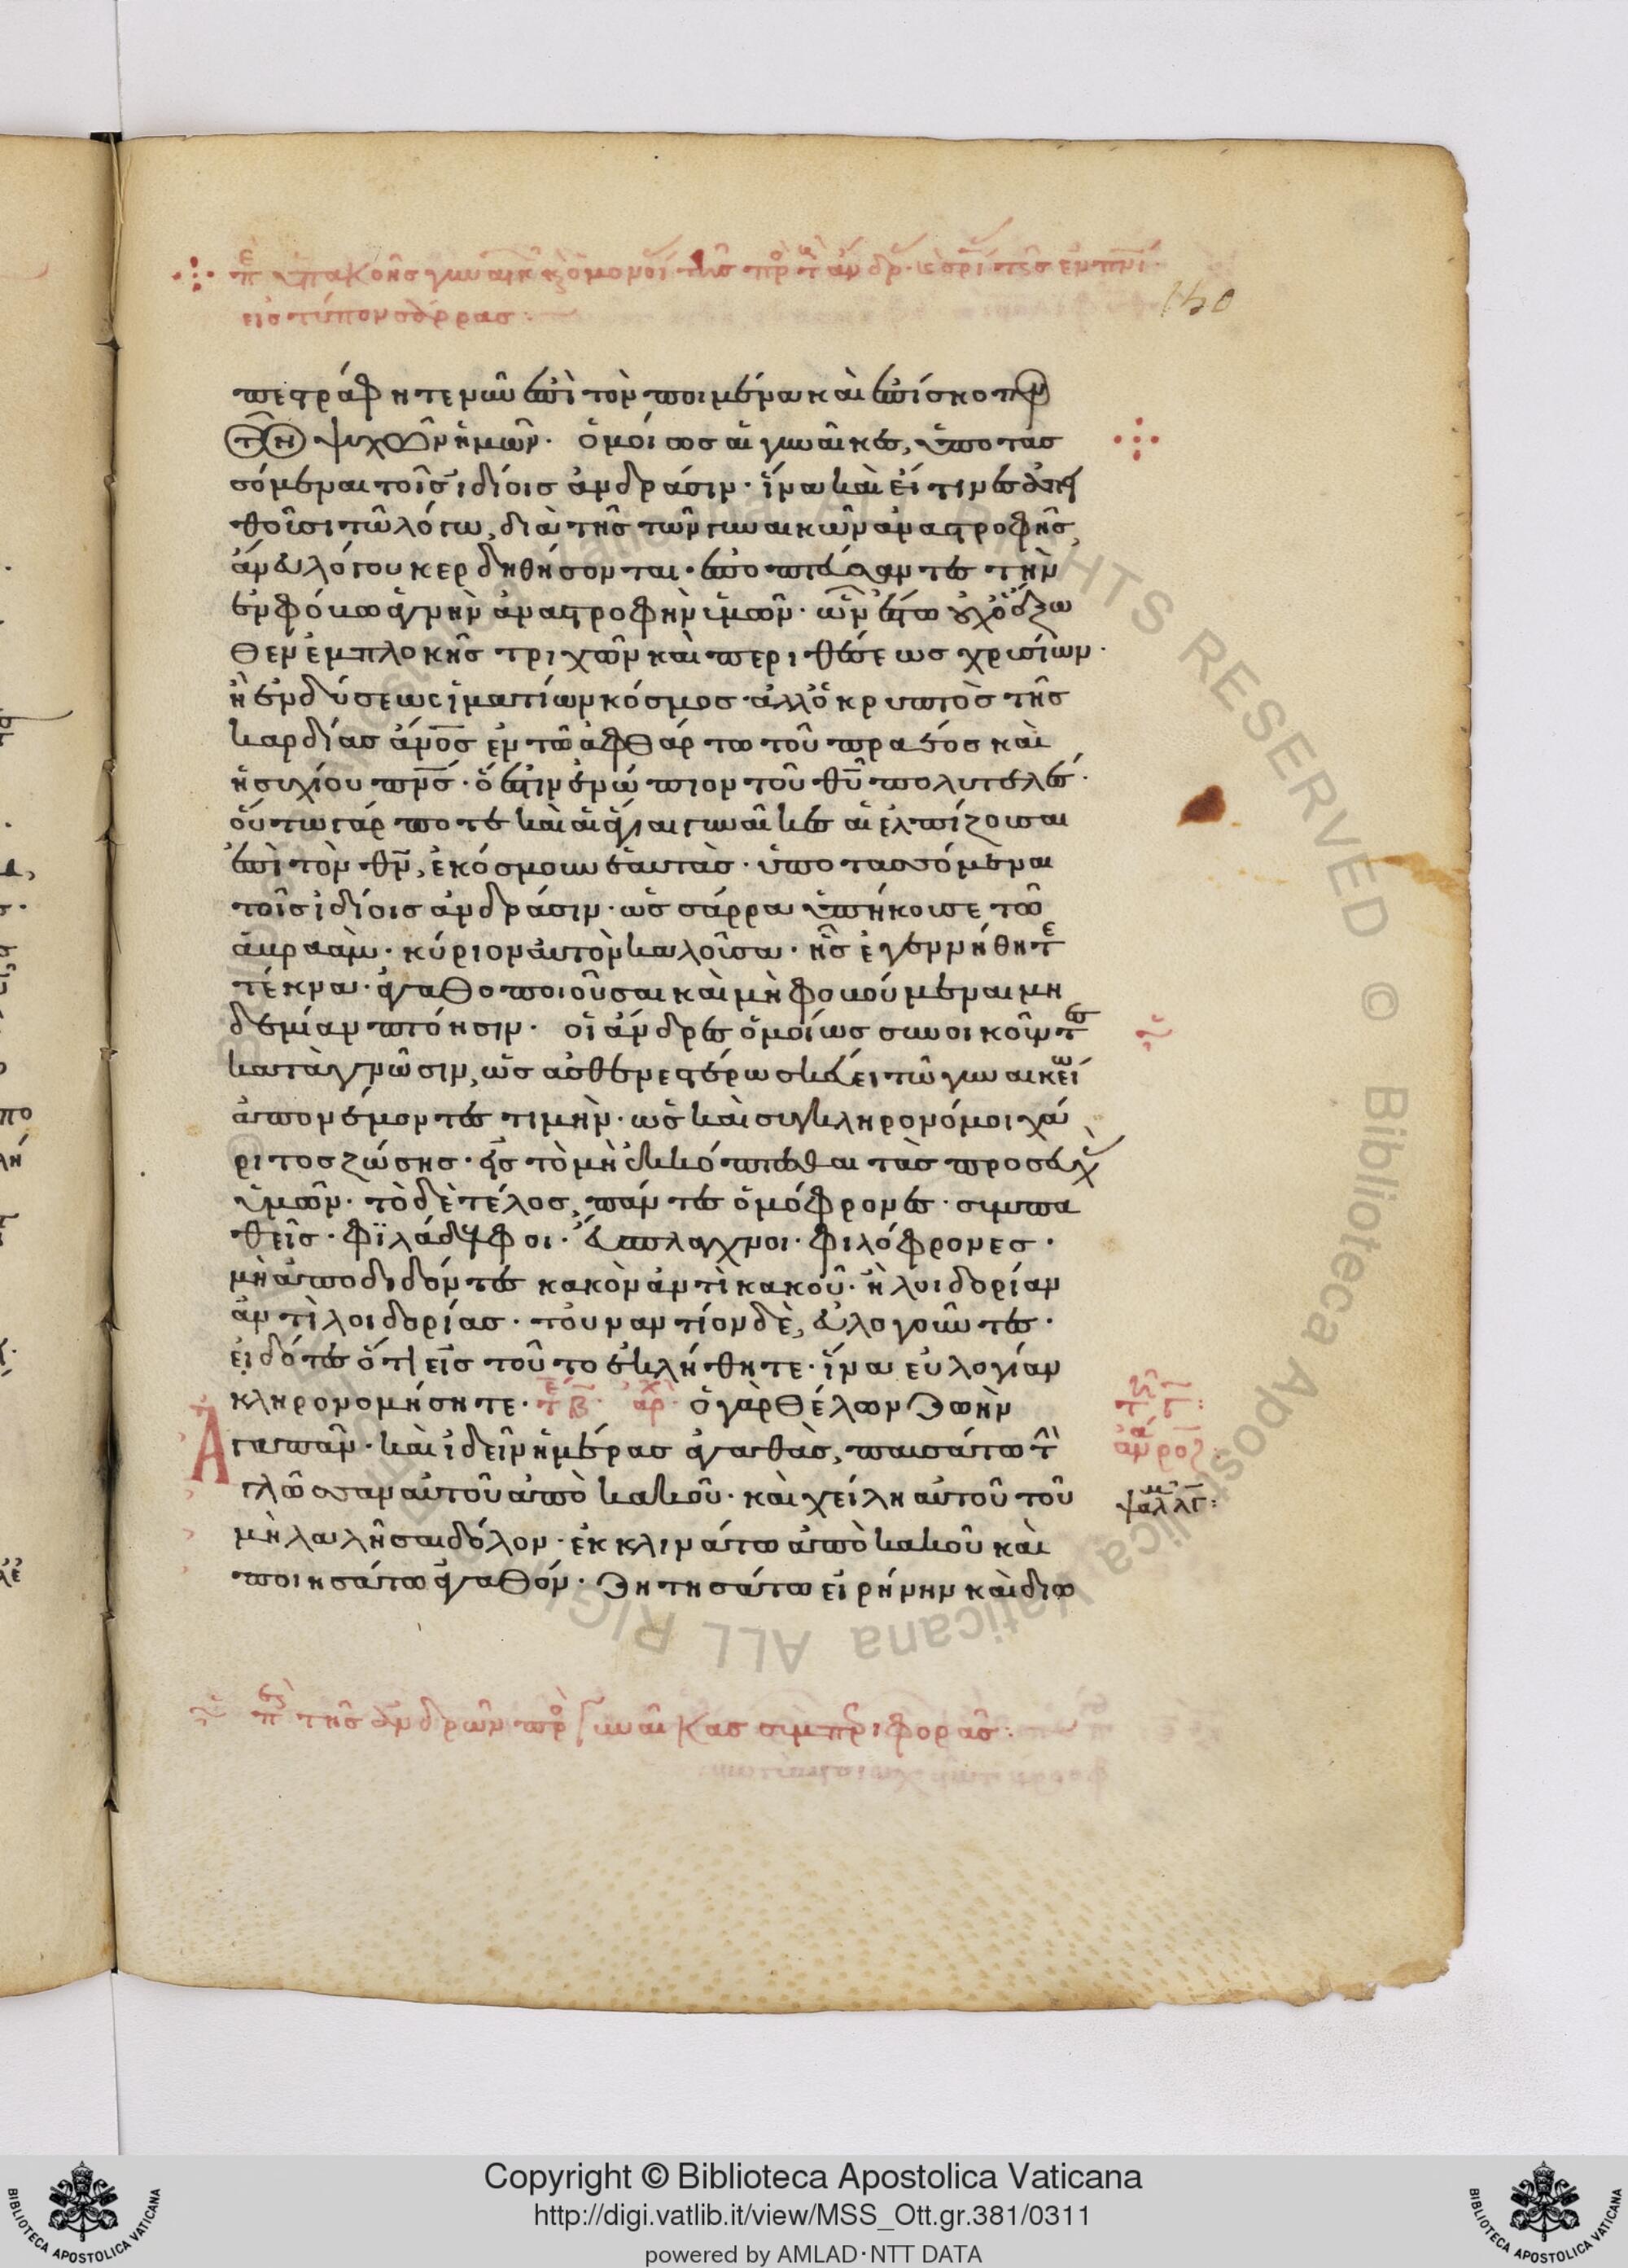 πεστράφητε νῦν ἐπὶ τὸν ποιμένα καὶ ἐπίσκοπον
τῶν ψυχῶν ἡμῶν. ὁμοίως αἱ γυναῖκες, ὑποτασ
σόμεναι τοῖς ἰδίοις ἀνδράσιν. ἵνα καὶ εἴ τινες ἀπει
θοῦσι τῶ λόγω, διὰ τῆς τῶν γυναικῶν ἀναστροφῆς,
ἄνευ λόγου κερδηθήσονται. ἐποπτεύσαντες τὴν
ἐν φόβω ἁγνὴν ἀναστροφὴν ὑμῶν. ὧν ἔστω οὐχ ὁ ἔξω
θεν ἐμπλοκῆς τριχῶν καὶ περιθέσεως χρυσίων.
ἢ ἐνδύσεως ἱματίων κόσμος ἀλλ' ὁ κρυπτὸς τῆς
καρδίας ἄνος ἐν τῶ ἀφθάρτω τοῦ πραέος καὶ
ἡσυχίου πνς. ὅ ἐστιν ἐνώπιον τοῦ θυ πολυτελές.
οὕτω γάρ ποτε καὶ αἱ ἅγιαι γυναῖκες αἱ ἐλπίζουσαι
ἐπὶ τὸν θν, ἐκόσμουν ἑαυτὰς. ὑποτασσόμεναι
τοῖς ἰδίοις ἀνδράσιν. ὡς σάρρα ὑπήκουσε τῶ
ἀβραὰμ. κύριον αὐτὸν καλοῦσα. ἧς ἐγεννήθητε
τέκνα. ἀγαθοποιοῦσαι καὶ μὴ φοβούμεναι μη
δεμίαν πτόησιν. οἱ ἄνδρες ὁμοίως συνοικοῦντες
κατὰ γνῶσιν, ὡς ἀσθενεστέρω σκεύει τῶ γυναικείω
ἀπονέμοντες τιμὴν. ὡς καὶ συγκληρονόμοι χά
ριτος ζώσης. εἰς τὸ μὴ ἐκκόπτεσθαι τὰς προσευχὰς
ὑμῶν. τὸ δὲ τέλος, πάντες ὁμόφρονες. συμπα
θεῖς. φϊλάδελφοι. εὔσπλαγχνοι. φιλόφρονες.
μὴ ἀποδιδόντες κακὸν ἀντὶ κακοῦ. ἢ λοιδορίαν
ἀντὶ λοιδορίας. τοὐναντίον δὲ, εὐλογοῦντες.
εἰδότες ὅτι εἰς τοῦτο ἐκλήθητε. ἵνα εὐλογίαν
κληρονομήσητε. ὁ γὰρ θέλων ζωὴν
Ἀγαπᾶν. καὶ ἰδεῖν ἡμέρας ἀγαθὰς, παυσάτω τὴν
γλῶσσαν αὐτοῦ ἀπὸ κακοῦ. καὶ χείλη αὐτοῦ τοῦ
μὴ λαλῆσαι δόλον. ἐκκλινάτω ἀπὸ κακοῦ καὶ
ποιησάτω ἀγαθόν. ζητησάτω εἰρήνην καὶ διω
περὶ τῆς ἀνδρῶν πρὸς γυναῖκας συμπεριφορᾶς:
Copyright © Biblioteca Apostolica Vaticana
http://digi.vatlib.it/view/MSS_Ott.gr.381/0311
powered by AMLAD·NTT DATA
BIBLIOTECA APOSTOLICA VATICANA
BIBLIOTECA APOSTOLICA VATICANA